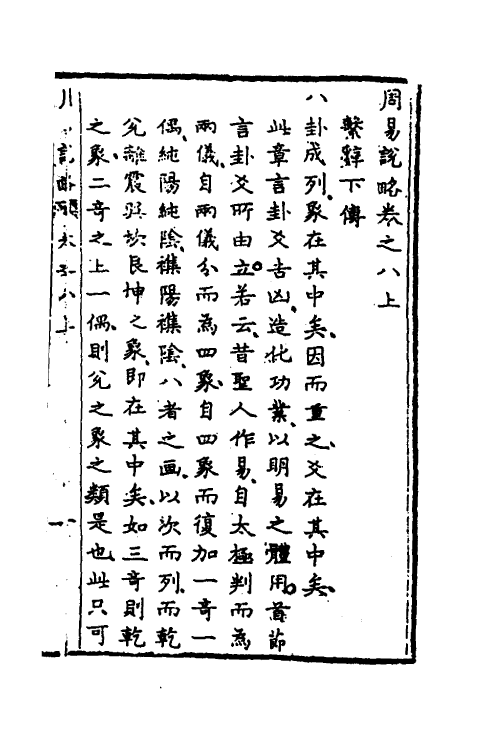 周易說略卷之八上
繫辭下傳
八卦成列、象在其中矣、因而重之、爻在其中矣、
此章言卦爻吉凶、造化功業、以明易之體用。首節
言卦爻所由立。若云、昔聖人作易、自太極判而為
兩儀、自兩儀分而為四象、自四象而復加一奇一
偶、純陽純陰、襍陽襍陰、八者之画、以次而列、而乾
兊離震巽坎艮坤之象、即在其中矣、如三奇則乾
之象、二奇之上一偶、則兊之象之類是也、此只可